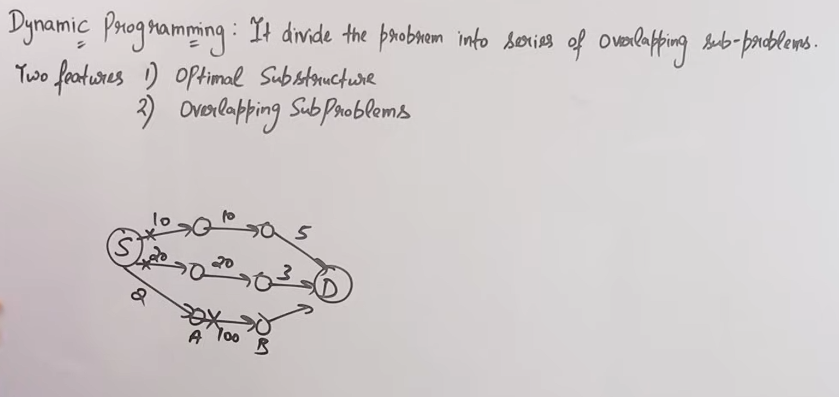 Dynamic Programming: It divide the problem into series of overlapping sub-problems.
Two features 1) Optimal Substructure
2) Overlapping SubProblems
10 10 5
S 20 20 3 D
2
A 100 B